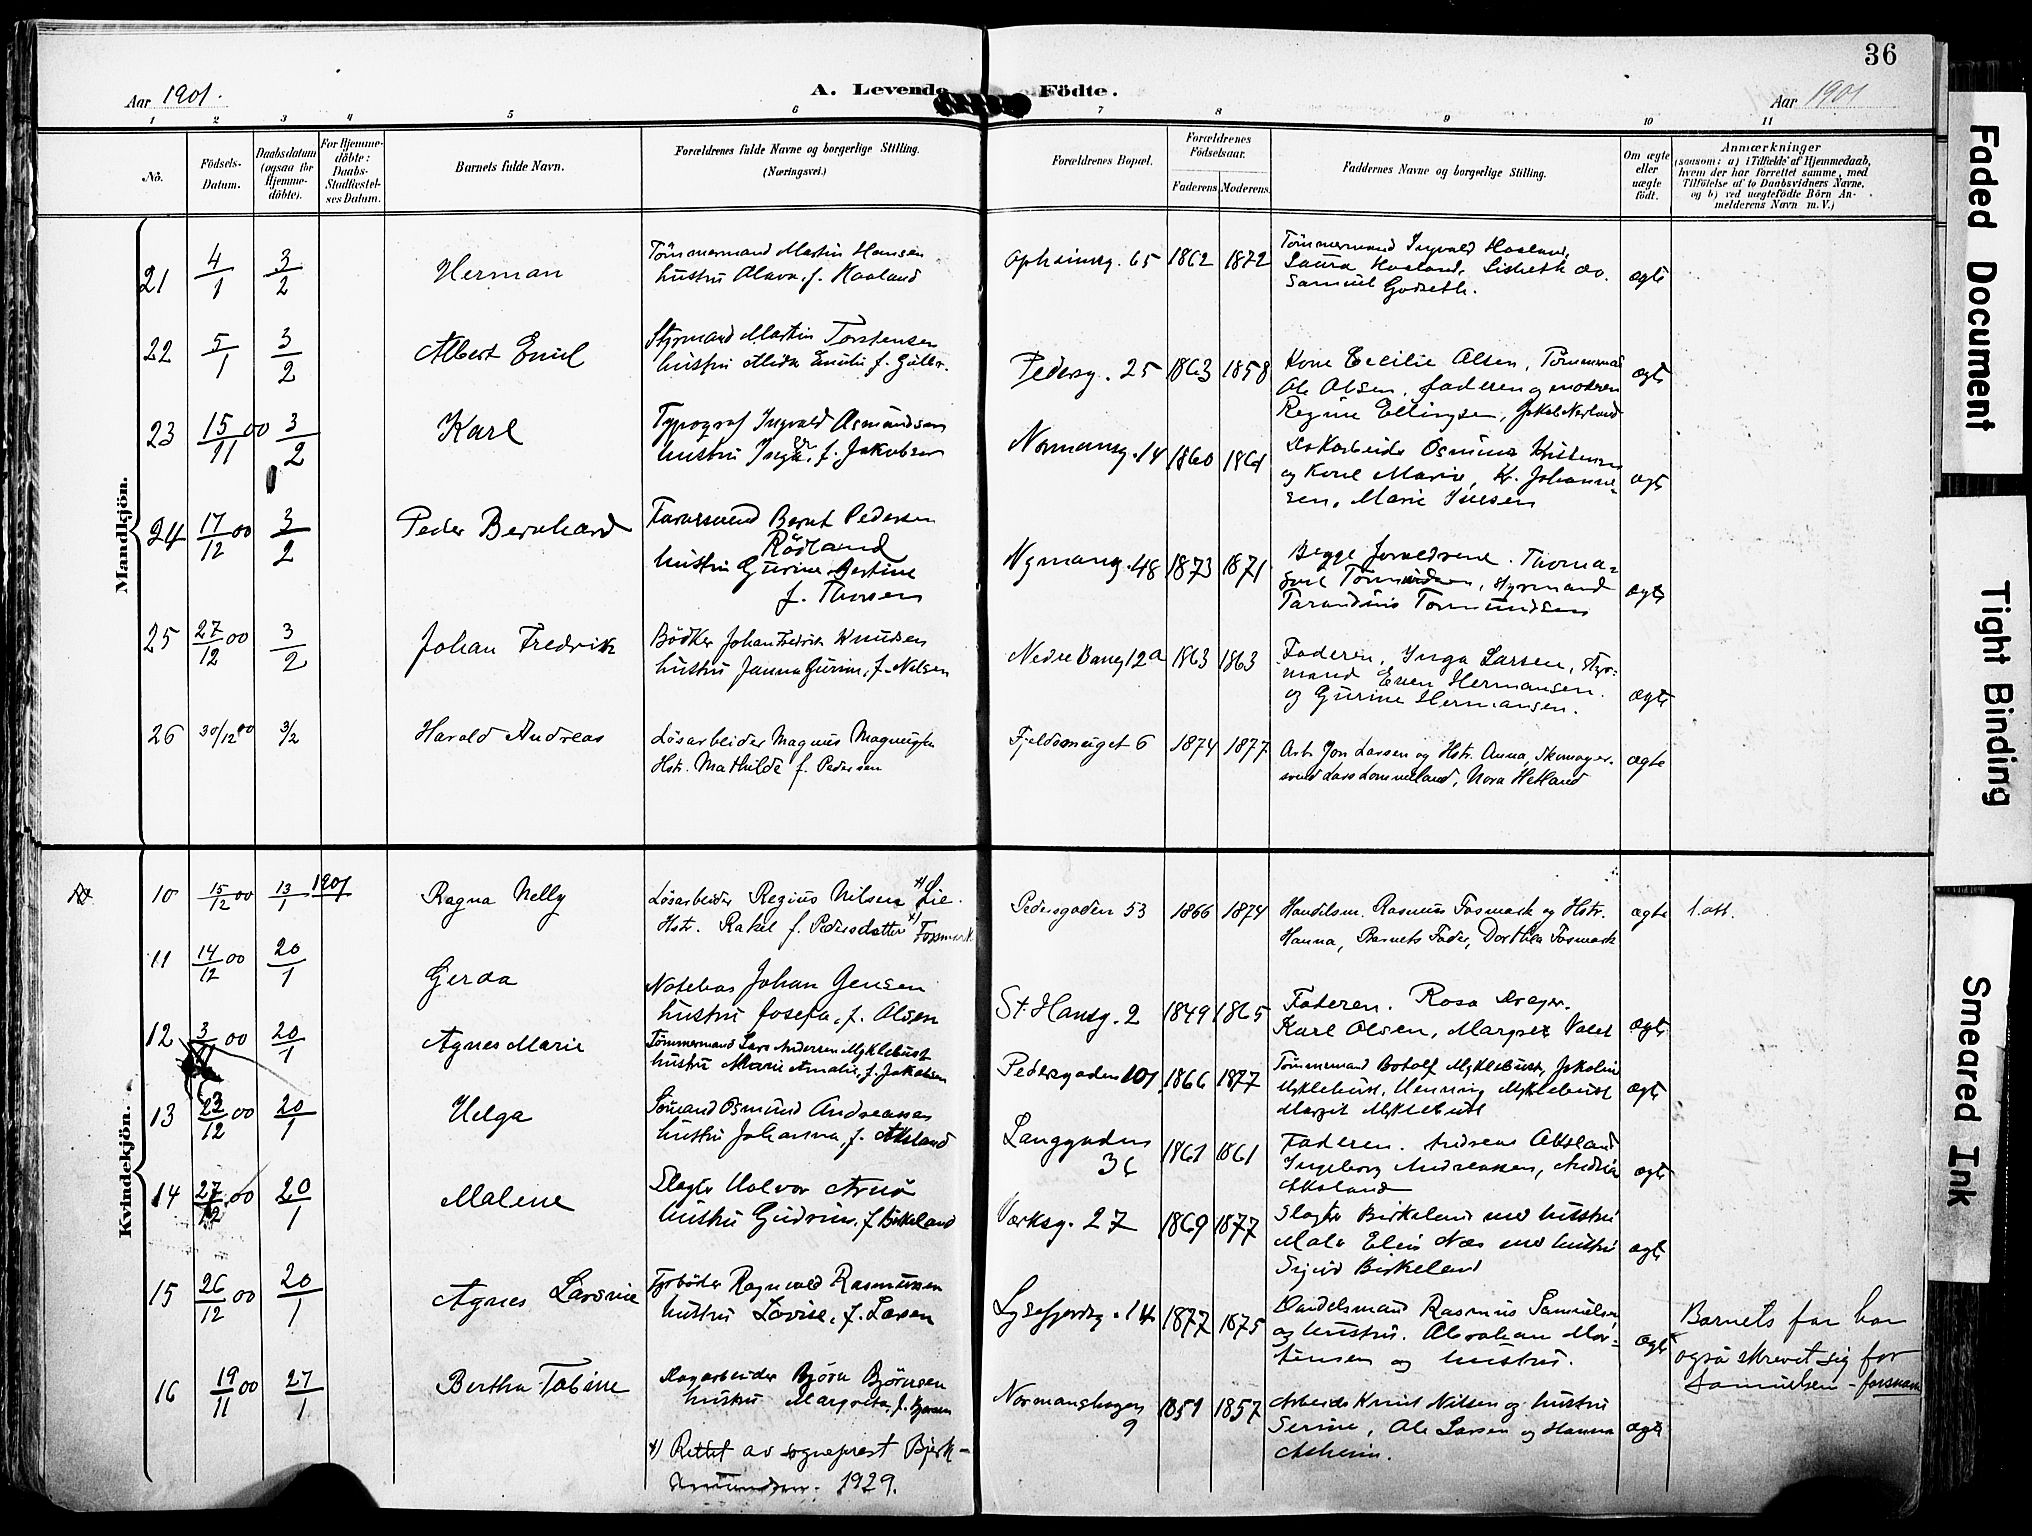 36
Aar 1901.
A. Levende Födte.
Aar 1901
1 2 3 4 5 6 7 8 9 10 11
No.
Födsels-
Datum.
Daabsdatum
(ogsaa for
Hjemme-
döbte).
For Hjemme-
döbte:
Daabs-
Stadfæstel-
ses Datum.
Barnets fulde Navn.
Forældrenes fulde Navne og borgerlige Stilling.
(Næringsvei.)
Forældrenes Bopæl.
Forældrenes
Födselsaar.
Faderens. Moderens.
Faddernes Navne og borgerlige Stilling.
Om ægte
eller
uægte
födt.
Anmærkninger
(saasom: a) i Tilfælde af Hjemmedaab,
hvem der har forrettet samme, med
Tilföielse af to Daabsvidners Navne,
og b) ved uægtefödte Börn An-
melderens Navn m. V.)
Mandkjön.
21 4/1 3/2 Herman
Tömmermand Martin Hansen
hustru Olava, f. Haaland
65 1862 1872
Tömmermand Ingvald Haaland,
Laura Haaland, Lisbeth do.
Samuel Godseth.
ægte
22 5/1 3/2 Albert Emil
Styrmand Martin Torstensen
hustru Emilie f.
Pedersg. 25 1863 1858
Kone Cecilie Olsen,
Ole Olsen, faderen og moderen
ægte
23 15/11 00 3/2 Karl
Typograf Ingvald Osmundsen
hustru f. Jakobsen
Normansg. 14 1860 1861
Regine Ellingsen,
og Kone Marie, Johanne-
sen, Marie Iversen
ægte
24 17/12 00 3/2 Peder Bernhard
Farversvend Bernt Pedersen
Rödland
hustru Gurine Bertine
f. Thorsen
Nymansg. 48 1873 1871
Begge forældrene. Thoma-
styrmand
Tormundsen
ægte
25 27/12 00 3/2 Johan Fredrik
Bödker Johan Fredrik Knudsen
hustru Janna Gurine, f. Nilsen
Nedre Bang 12a 1863 1863
Faderen, Inga Larsen, styr-
mand Even Hermansen
og Gurine Hermansen.
ægte
26 30/12 00 3/2 Harald Andreas
Lösarbeider Magnus
Hstr. Mathilde f. Pedersen
Fjeldsmuget 6 1874 1877
Arb. Jon Larsen og Hstr. Anna, Skomager-
svend Lars Lommeland, Nora Hetland
ægte
Kvindekjön.
10 15/12 00 13/1 1901 Ragna Nelly
Lösarbeider Regius Nilsen x) Lie.
Hstr. Rakel f. Pedersdatter x) Fossmark
Pedersgaden 53 1866 1874
Handelsm. Rasmus Fosmark og Hstr.
Hanna, Barnets Fader, Dorthea Fosmark
ægte 1. att.
11 14/12 00 20/1 Gerda
Notebas Johan Jensen
hustru Josefa, f. Olsen
St. Hansg. 2 1849 1865
Faderen. Rosa
Karl Olsen,
ægte
12 3/11 00 20/1 Agnes Marie
Tömmermand Lars Andersen Myklebust
hustru Marie Amalie, f. Jakobsen
Pedersgaden 101 1866 1877
Tömmermand Botolf Myklebust, Jakoline
Myklebust, Henning Myklebust
Margit Myklebust
ægte
13 23/12 00 20/1 Helga
Sömand Osmund Andreassen
hustru Johanna, f. Aksland
Langgaden
36 1861 1861
Faderen. Andreas Aksland
Ingeborg Andreassen,
Aksland
ægte
14 27/12 00 20/1 Malene
Slagter Halvor
hustru f. Birkeland
Værksg. 27 1869 1877
Slagter Birkeland med hustru
Næs med hustru
Birkeland
ægte
15 26/12 00 20/1 Agnes
Fyrböder Ragnvald Rasmussen
hustru Lovise, f. Larsen
Lysefjordg. 14 1877 1875
Handelsmand Rasmus Samuelsen
og hustru. Abraham Mor-
tensen og hustru.
ægte
Barnets far har
også skrevet sig for
Samuelsen - forsnavn
16 19/11 00 27/1 Bertha Tobine
Dagarbeider Björn Björnsen
hustru Margreta, f.
9 1859 1857
Arbeider Knut Nilsen og hustru
Serine, Ole Larsen og Hanna
Askeim.
ægte
x) Rettet av sogneprest Bjerk-
1929.
Faded Document
Tight Binding
Smeared Ink